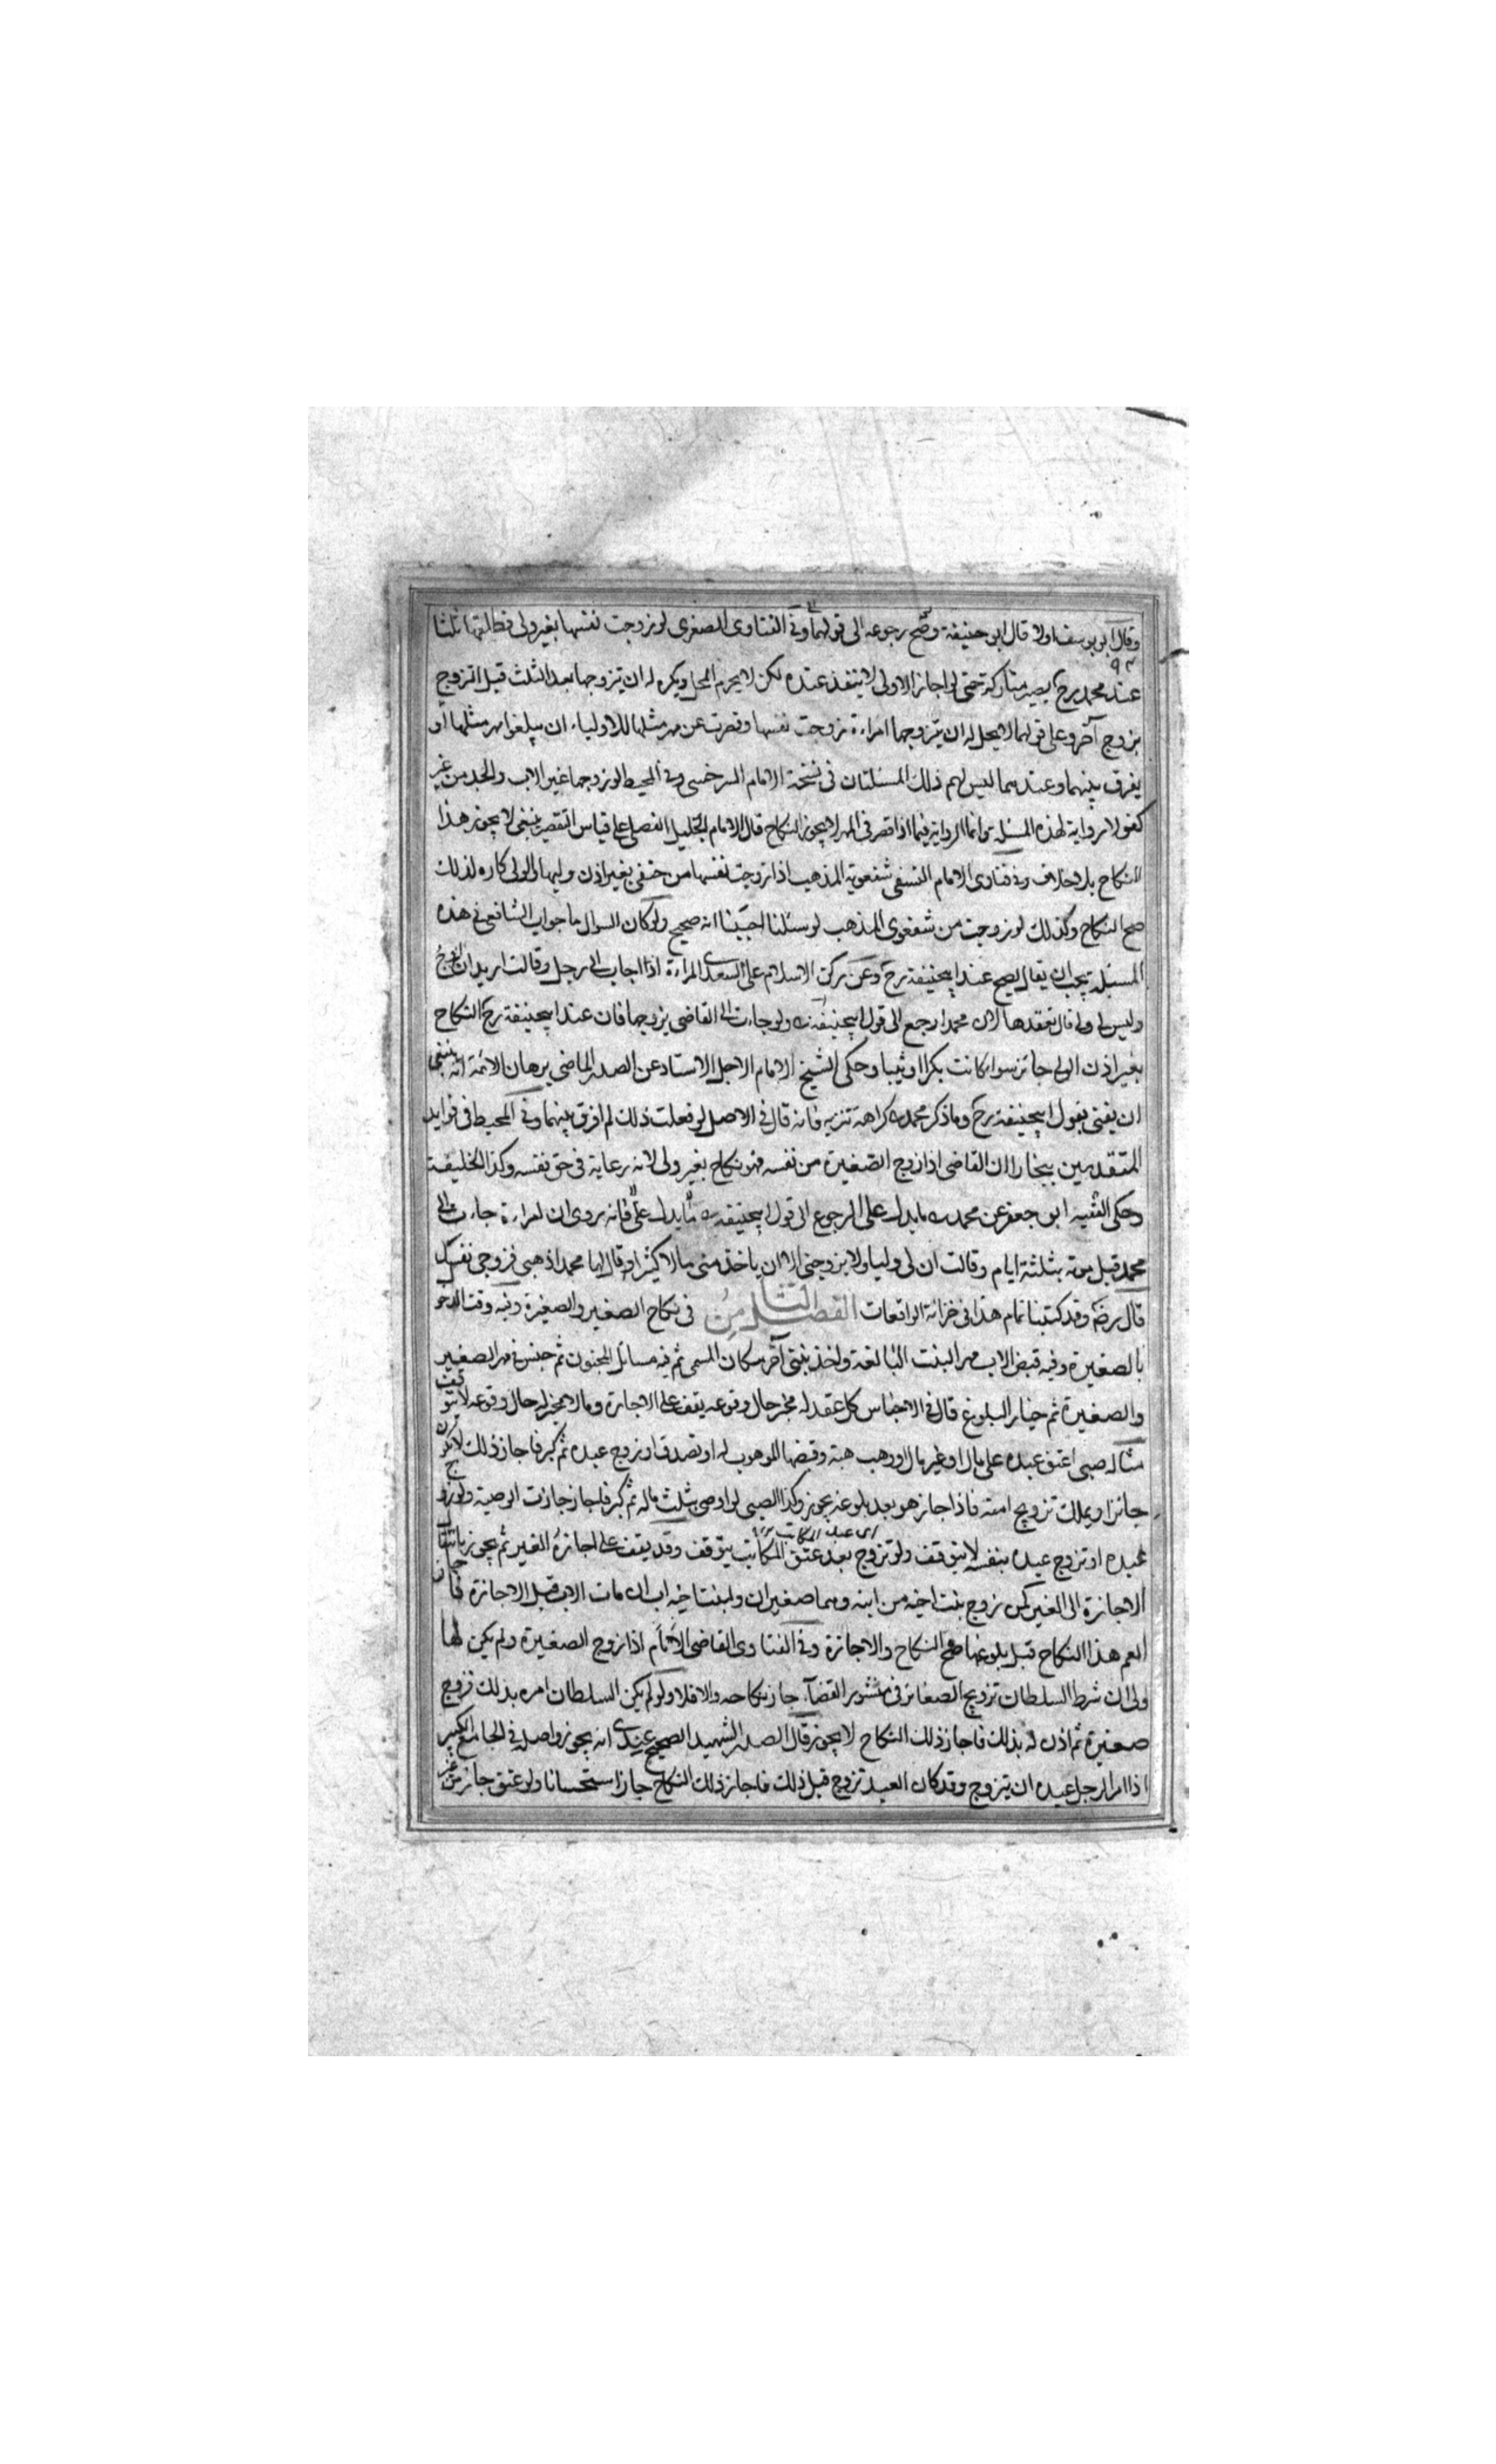 وقال ابو يوسف اولا قال ابو حنيفة وصح رجوعه الى قولهما وفي الفتاوى الصغرى لو زوجت نفسها بغير ولى فطلقها ثلثا
عند محمد رح يصير متاركة حتى لو اجاز الاولى لا ينفذ عنده لكن لا يحرم المحل ويكره له ان يتزوجها بعد الثلث قبل التزوج
بزوج آخر وعلى قولهما لا يحل له ان يتزوجها امراءة زوجت نفسها وقصرت عن مهر مثلها للاولياء ان يبلغوا مهر مثلها او
يفرق بينهما وعندهما ليس لهم ذلك المسئلتان فى نسخة الامام السرخسى وفى المحيط لو زوجها غير الاب والجد من غير
كفو لا رواية لهذه المسئلة وانما الرواية فيما اذا قصر فى المهر لا يجوز النكاح قال الامام الجليل الفضلى على قياس التقصير ينبغى لا يجوز هذا
النكاح بلا خلاف وفى فتاوى الامام النسفى شفعوية المذهب اذا تزوجت نفسها من حنفى بغير اذن وليها والولى كاره لذلك
صح النكاح وكذلك لو زوجت من شفعوى المذهب لو سئلنا اجبنا انه صحيح ولو كان السوال ما جواب الشافعى فى هذه
المسئلة يجب ان يقال يصح عند ابيحنيفة رح وعن ركن الاسلام على السعدى المراءة اذا جاءت الى رجل وقالت اريد ان اتزوج
وليس لى ولى قال تعقدها لان محمدا رجع الى قول ابيحنيفة ولو جاءت الى القاضى يزوجها فان عند ابيحنيفة رح النكاح
بغير اذن الولى جائز سواء كانت بكرا او ثيبا وحكى الشيخ الامام الاجل الاستاد عن الصدر الماضى برهان الائمة انه ينبغى
ان يفتى بقول ابيحنيفة رح وما ذكر محمد كراهة تنزيه فانه قال فى الاصل لو فعلت ذلك لم افرق بينهما وفى المحيط فى فوايد
المتقدمين ببخارا ان القاضى اذا زوج الصغيرة من نفسه فهو نكاح بغير ولى لانه رعاية فى حق نفسه وكذا الخليفة
وحكى الفقيه ابو جعفر عن محمد ما يدل على الرجوع الى قول ابيحنيفة ما يدل على فانه روى ان امراءة جاءت الى
محمد قبل موته بثلثة ايام وقالت ان لى وليا ولا يزوجنى الا ان ياخذ منى مالا كثيرا وقال لها محمد اذهبى فزوجى نفسك
قال رضه وقد كتبنا تمام هذا فى خزانة الواقعات الفصل الثامن فى نكاح الصغير والصغيرة وفيه وقت الدخو
بالصغيرة وفيه قبض الاب مهر البنت البالغة واخذ بنتى آخر مكان المسمى ثم فيه مسائل المجنون ثم جنس فى مهر الصغير
والصغيرة ثم خيار البلوغ قال فى الاجناس كل عقد له مجيز حال وقوعه يقف على الاجازة وما لا مجيز له حال وقوعه لا يتوقف
مثاله صبى اعتق عبده على مال او غير مال او وهب هبة وقبضها الموهوب له او تصدق او زوج عبده ثم كبر فاجاز ذلك لا يكون
جائزا ويملك تزويج امته فاذا اجاز هو بعد بلوغه يجوز وكذا الصبى لو اوصى بثلث ماله ثم كبر فاجاز جازت الوصية ولو زوج
اى عبد المكاتب
عبده او تزوج عبده بنفسه لا يتوقف ولو تزوج بعد عتق المكاتب يتوقف وقد يقف على اجازة الغير ثم يجوز بانتقا
الاجازة الى الغير كمن زوج بنت اخيه من ابنه وهما صغيران ولبنت اخيه اب ان مات الاب قبل الاجازة فاجاز
العم هذا النكاح قبل بلوغها صح النكاح والاجازة وفى الفتاوى القاضى الامام اذا زوج الصغيرة ولم يكن لها
ولى ان شرط السلطان تزويج الصغائر فى منشور القضاء جاز نكاحه والا فلا ولو لم يكن السلطان امره بذلك فزوج
صغيرة ثم اذن له بذلك فاجاز ذلك النكاح لا يجوز قال الصدر الشهيد الصحيح عندى انه يجوز واصله فى الجامع الكبير
اذا امر الرجل عبده ان يتزوج وقد كان العبد تزوج قبل ذلك فاجاز ذلك النكاح جاز استحسانا ولو عتق جاز من غير